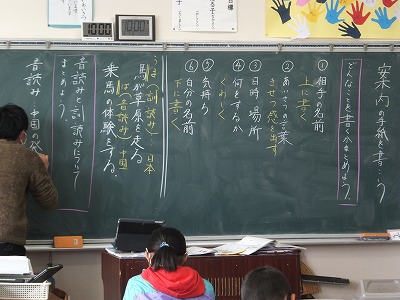 案内の手紙を書こう
どんなことを書くかまとめよう。
①相手の名前
上に書く
②あいさつの言葉
きせつ感を出す
③日時 場所
④何をするか
くわしく
⑤気持ち
⑥自分の名前
下に書く
うま(訓読み) 日本
馬が草原を走る
ば(音読み) 中国
乗馬の体験をする。
音読みと訓読みについて
まとめよう。
音読み…中国の発